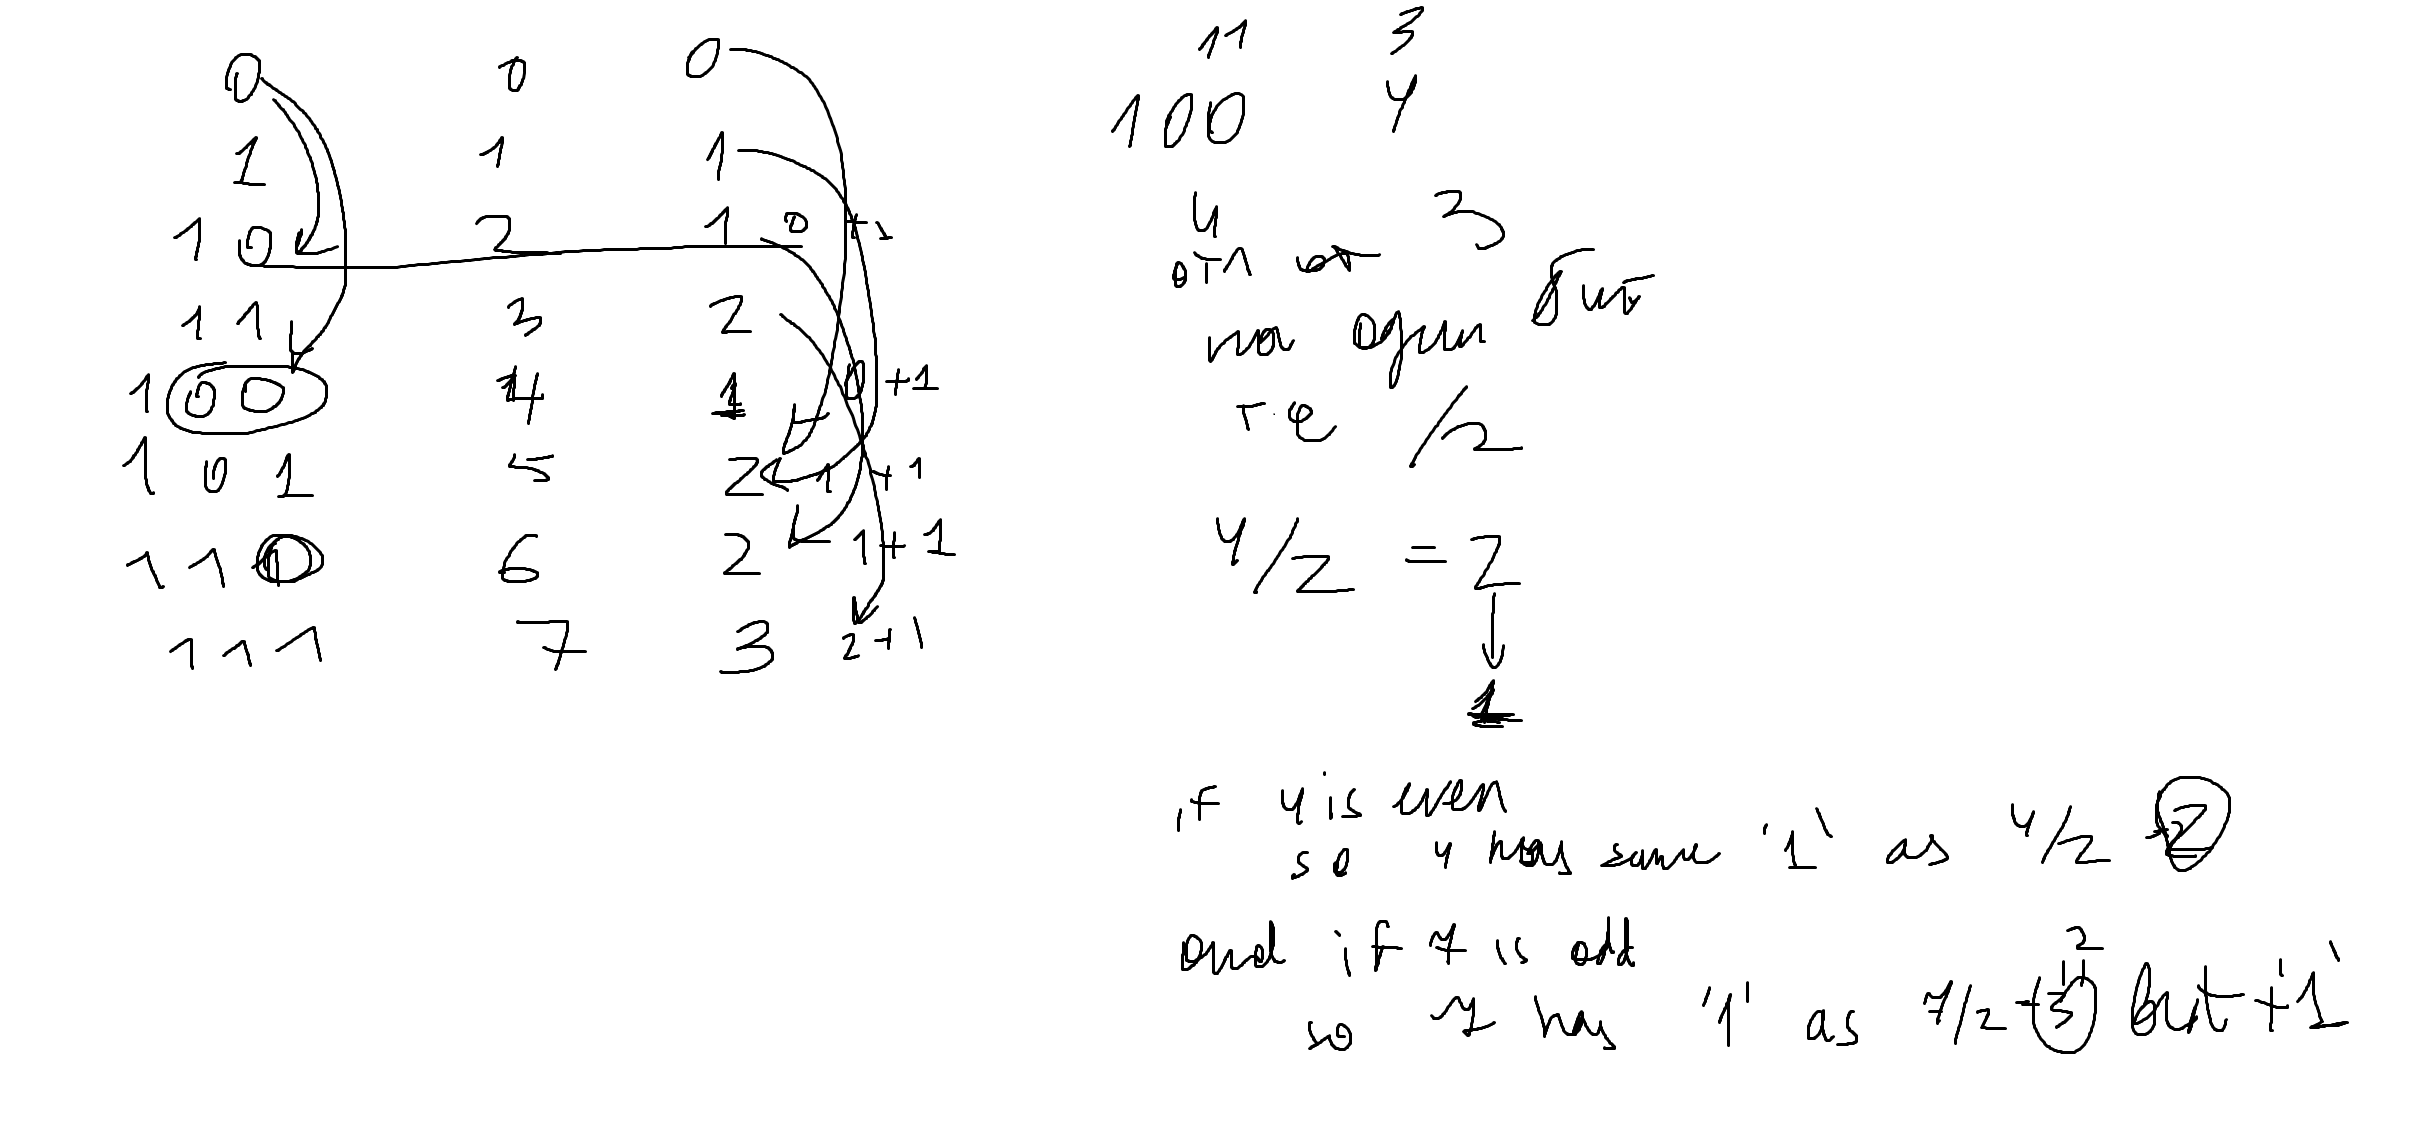 0 0 0
1 1 1
1 0 2 1 0 +1
1 1 3 2
1 0 0 4 1 0 +1
1 0 1 5 2 1 +1
1 1 0 6 2 1+1
1 1 1 7 3 2+1
11 3
100 4
4 3
отл от
на один бит
т.е /2
4/2 = 2
1
if 4 is even
so 4 has same '1' as 4/2 2
and if 7 is odd
2
so 7 has '1' as 7/2 3 but +'1'